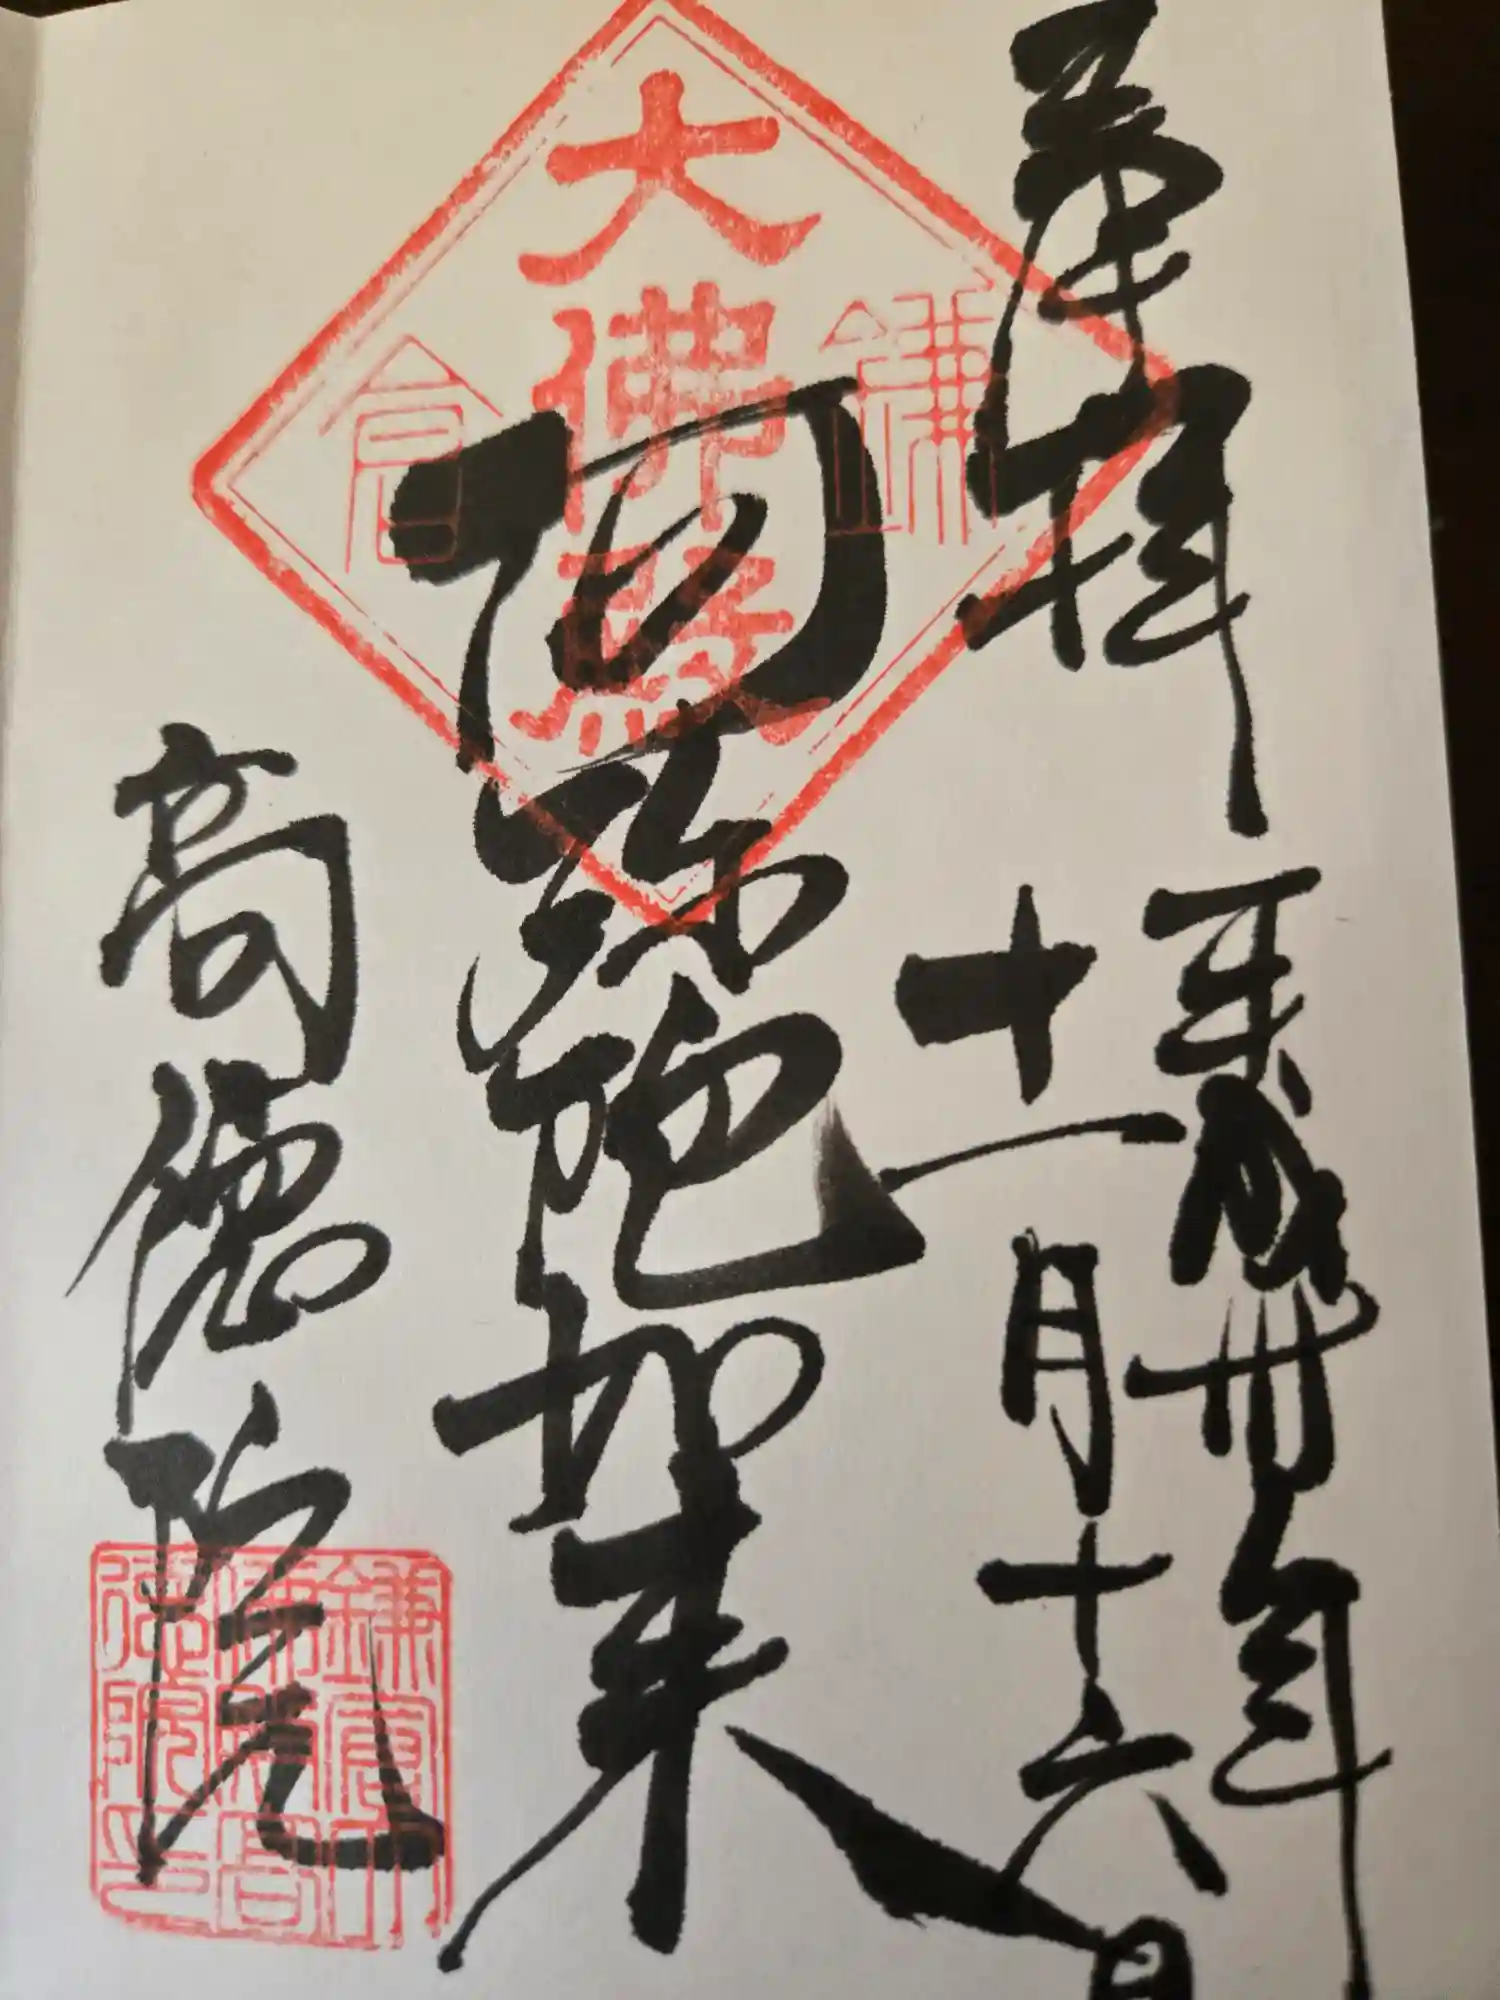 奉拝
平成卅年
十一月十六日
阿弥陀如来
高徳院
大佛殿
鎌倉
鎌倉大佛殿高徳院印